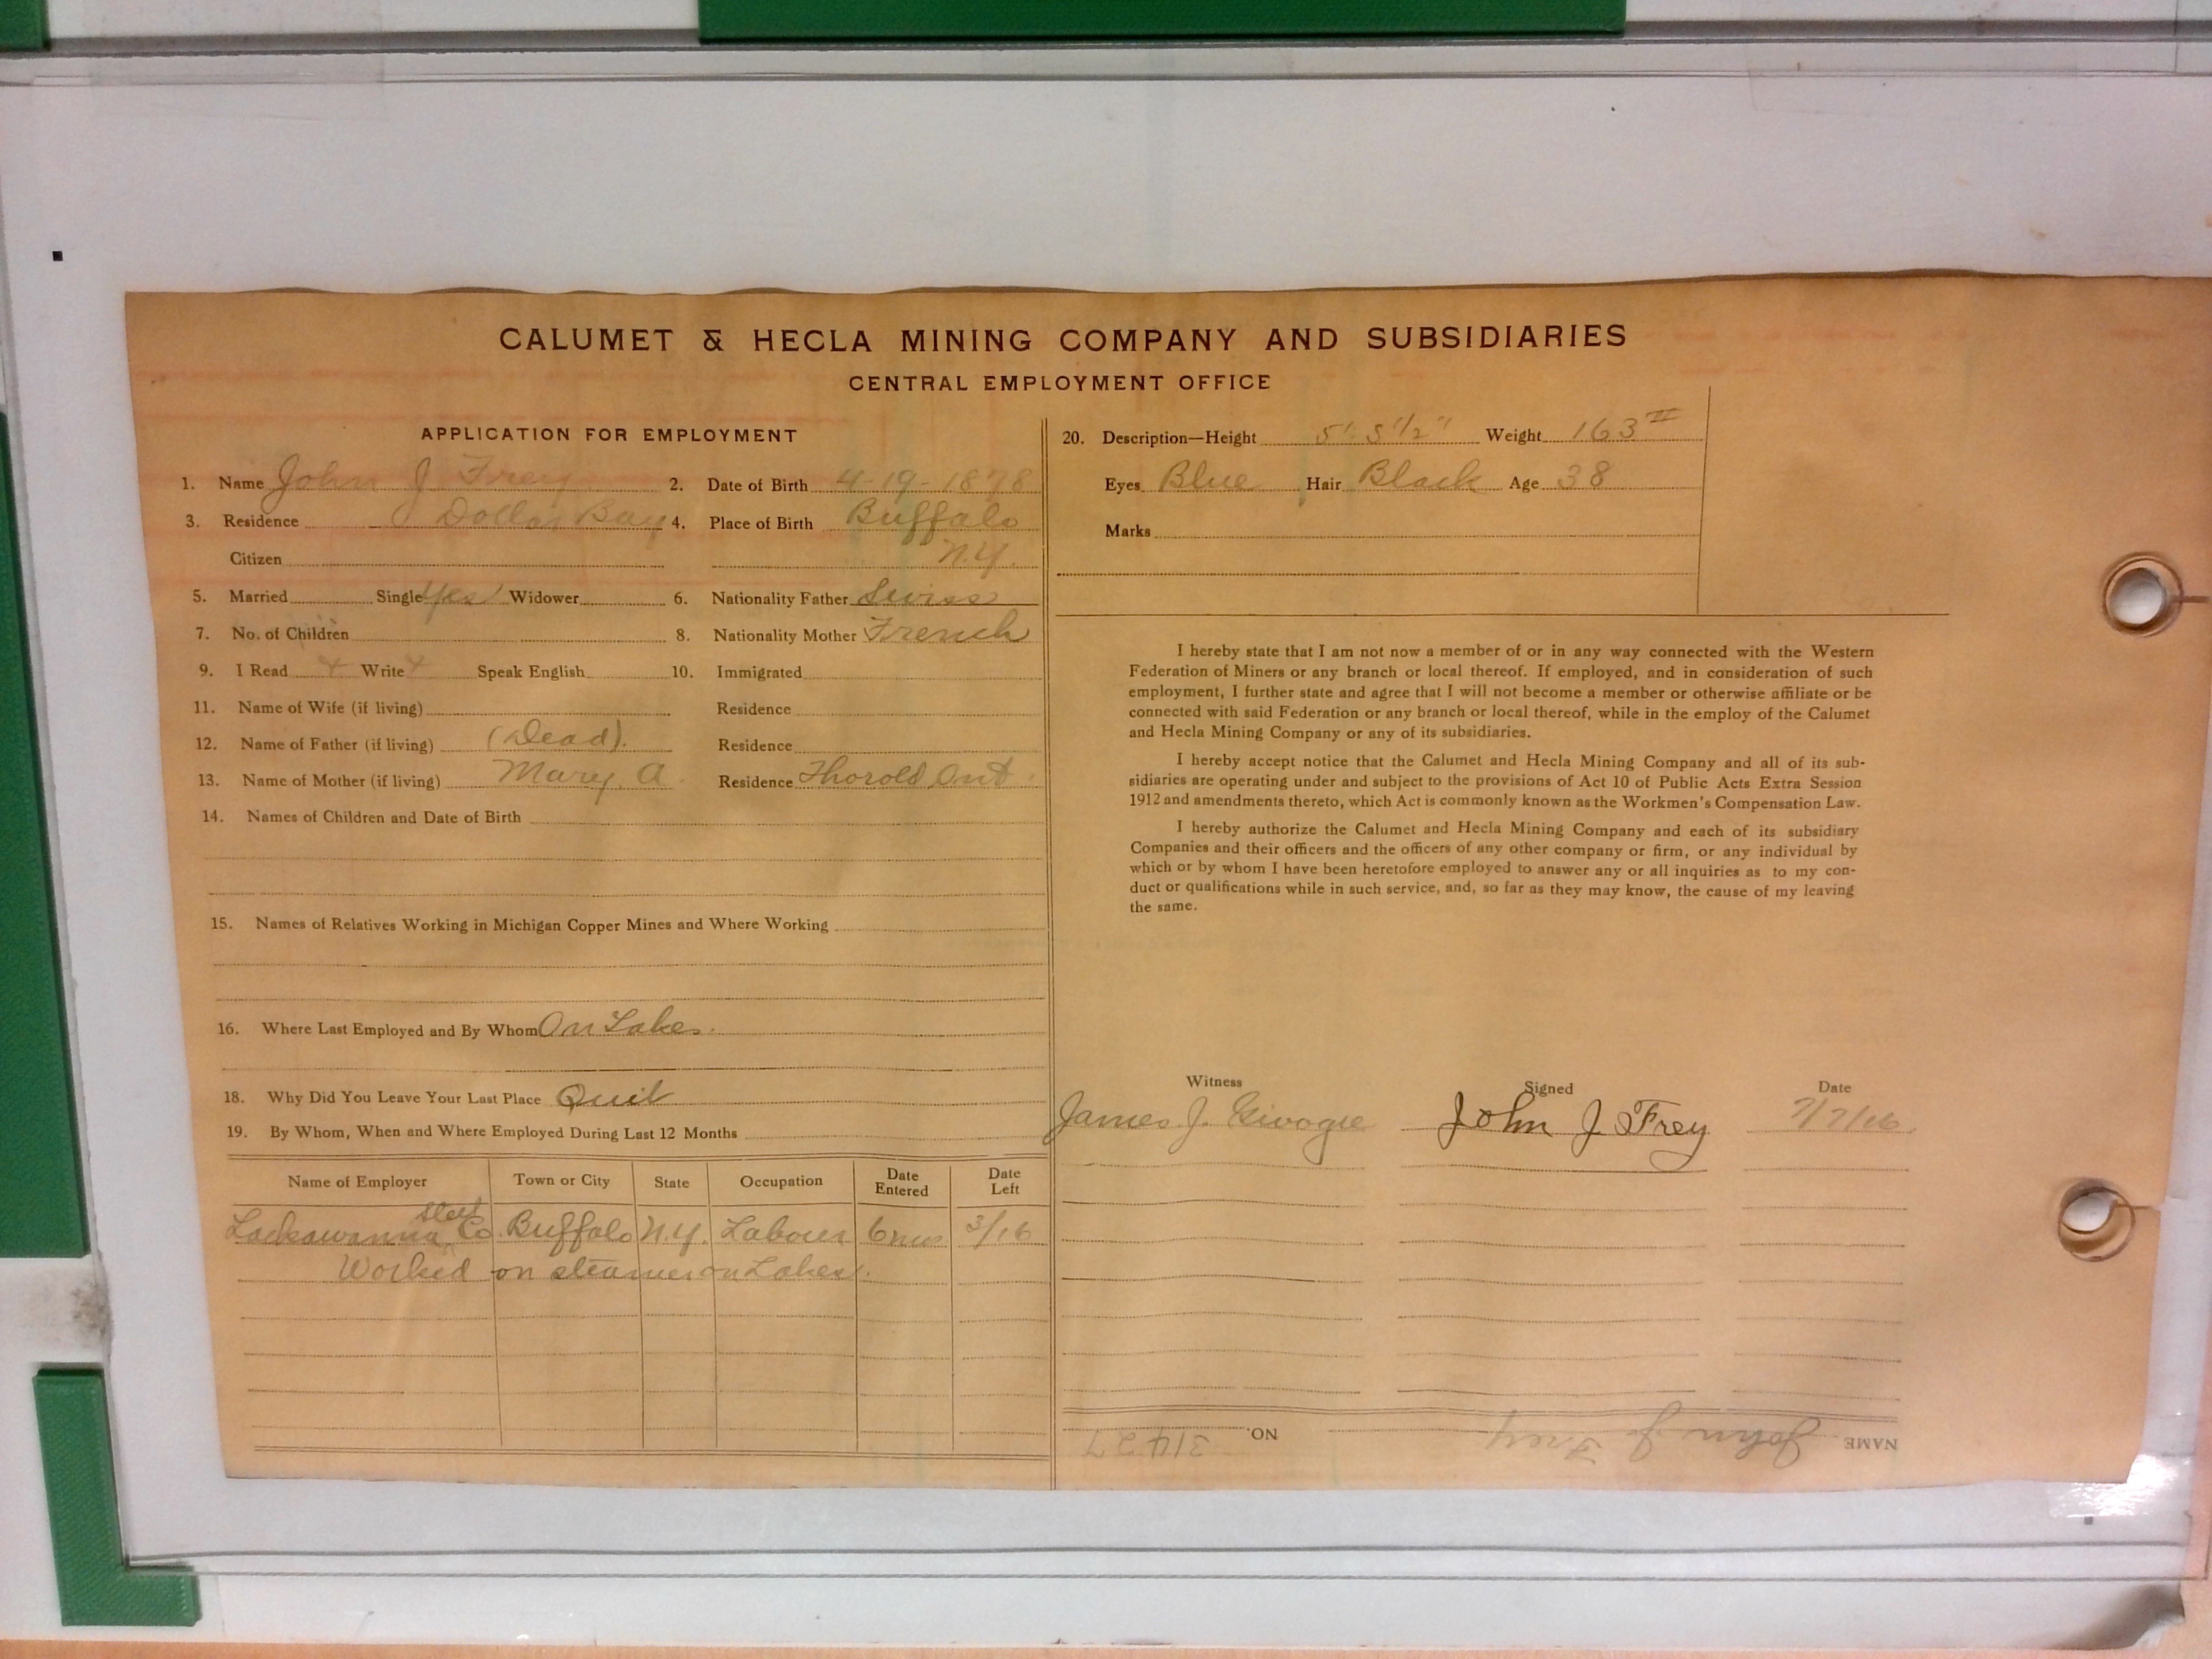 CALUMET & HECLA MINING COMPANY AND SUBSIDIARIES
CENTRAL EMPLOYMENT OFFICE
APPLICATION FOR EMPLOYMENT
1. Name John J Frey 2. Date of Birth 4-19-1878
3. Residence Dollar Bay 4. Place of Birth Buffalo
Citizen N.Y.
5. Married Single Yes Widower 6. Nationality Father Swiss
7. No. of Children 8. Nationality Mother French
9. I Read x Write x Speak English 10. Immigrated
11. Name of Wife (if living) Residence
12. Name of Father (if living) (Dead). Residence
13. Name of Mother (if living) Mary A. Residence Thorold Ont.
14. Names of Children and Date of Birth
15. Names of Relatives Working in Michigan Copper Mines and Where Working
16. Where Last Employed and By Whom On Lakes.
18. Why Did You Leave Your Last Place Quit
19. By Whom, When and Where Employed During Last 12 Months
Name of Employer Town or City State Occupation Date Entered Date Left
Lackawanna Steel Co. Buffalo N.Y. Labour 6 mos 3/16
Worked on steamer on Lakes.
20. Description—Height 5' 5 1/2" Weight 163
Eyes Blue Hair Black Age 38
Marks
I hereby state that I am not now a member of or in any way connected with the Western
Federation of Miners or any branch or local thereof. If employed, and in consideration of such
employment, I further state and agree that I will not become a member or otherwise affiliate or be
connected with said Federation or any branch or local thereof, while in the employ of the Calumet
and Hecla Mining Company or any of its subsidiaries.
I hereby accept notice that the Calumet and Hecla Mining Company and all of its sub-
sidiaries are operating under and subject to the provisions of Act 10 of Public Acts Extra Session
1912 and amendments thereto, which Act is commonly known as the Workmen's Compensation Law.
I hereby authorize the Calumet and Hecla Mining Company and each of its subsidiary
Companies and their officers and the officers of any other company or firm, or any individual by
which or by whom I have been heretofore employed to answer any or all inquiries as to my con-
duct or qualifications while in such service, and, so far as they may know, the cause of my leaving
the same.
Witness Signed Date
James J. John J Frey 7/7/16.
NAME John J. Frey NO. 31427